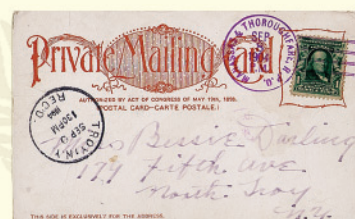 Private Mailing Card
AUTHORIZED BY ACT OF CONGRESS OF MAY 19TH, 1898.
POSTAL CARD-CARTE POSTALE.
THOROUGHFARE, R.P.O.
SEP
5
TROY, N.Y.
SEP 6
430PM
REC'D.
Miss Bessie Darling
Fifth Ave
North Troy
N.Y.
THIS SIDE IS EXCLUSIVELY FOR THE ADDRESS.